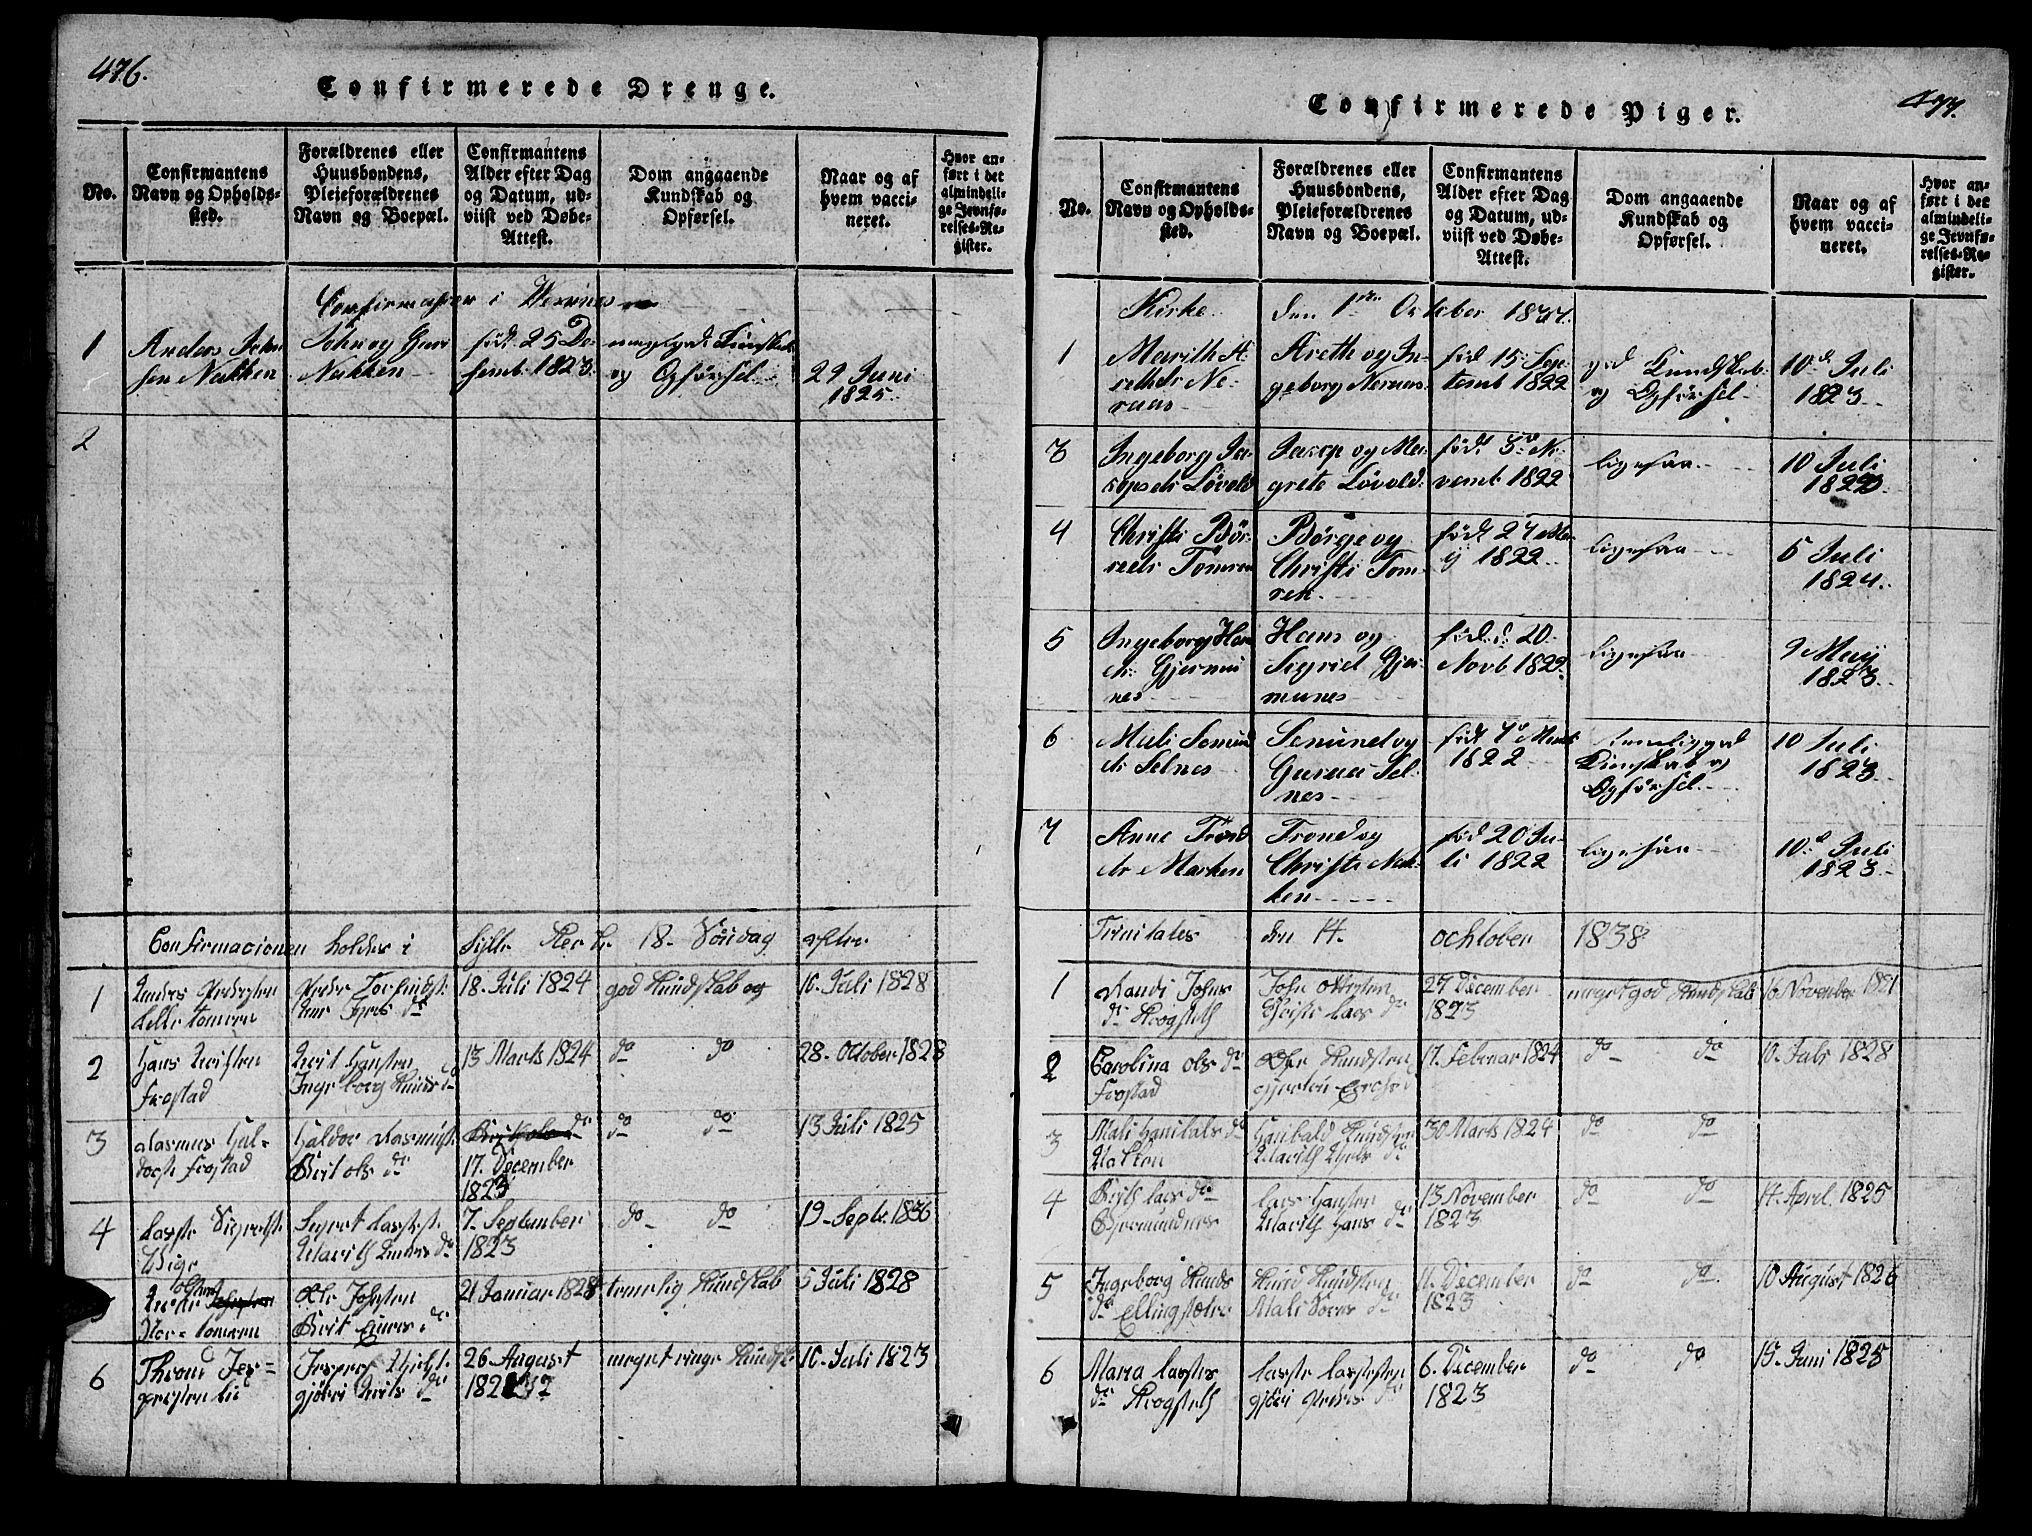 476.
Confirmerede Drenge.
No.
Confirmantens Navn og Opholdssted.
Forældrenes eller Huusbondens, Pleieforældrenes Navn og Boepæl.
Confirmantens Alder efter Dag og Datum, udviist ved Døbe-Attest.
Dom angaaende Kundskab og Opførsel.
Naar og af hvem vaccineret.
Hvor anført i det almindelige Jevnførelses-Register.
Confirmasion i
1 Anders John
sen Nakken
John og Guri
Nakken
født 25 De-
semb. 1823.
meget god Kundskab
og Opførsel
29 Juni
1825.
2
Confirmacionen holdes i Sylte Kerke 18. Søndag efter
1 Anders Pedersen
Pelle tomren
Peder Torfindst
18. Juli 1824
god Kundskab og
16. Juli 1828
2 Hans Knutsen
Frostad
Knut Hansten
Ingeborg Knuds dr
13 Marts 1824
do do
28. October 1828
3 Rasmus Hal-
dorst Frostad
Haldor Rasmust
Berit ols dr
17. December
1823
do do
13 Juli 1825
4 Lasse Sivertst
Wige
Sivert Lassest
Marith Anders dr
7. September
1823
do do
19. Septr. 1836
5
Nor-tomren
Ole Johsten
Berit Einers dr
21 Januar 1828
temelig Kundskab
5 Juli 1828
6 Thrond Jes-
persten Lie
26. August
meget ringe Kundsk.
10. Juli 1823
477.
Confirmerede Piger.
No.
Confirmantens Navn og Opholdssted.
Forældrenes eller Huusbondens, Pleieforældrenes Navn og Boepæl.
Confirmantens Alder efter Dag og Datum, udviist ved Døbe-Attest.
Dom angaaende Kundskab og Opførsel.
Naar og af hvem vaccineret.
Hvor anført i det almindelige Jevnførelses-Register.
Kirke den 1ste October 1837.
1 Marith A-
rethdr Ne-
raas
Areth og In-
geborg Neraas
fød 15. Sep-
temb 1822
god Kundskab
og Opførsel
10d Juli
1823
3 Ingeborg Ja-
copsdr Løvold
Jacop og Mar-
grete Løvold
født 5d No-
vemb 1822
ligesaa
10 Juli
4 Christi Bør-
Tomren
Børge og
Christi Tom-
ren
født 27 Ma-
y 1822
ligesaa
5 Juli
1824.
5 Ingeborg Han
dr Gjermu
nes
Hans og
Sigrid Gjer-
munes
fød d. 20
Novb 1822
ligesaa
9 Maij
1823
6 Mali Semund
dr Selnes
Semund og
Gurina Sel-
nes
født 7d
1822
temelig god
Kundskab og
Opførsel
10 Juli
1823
7 Anne Trond
dr Marken
Trond og
Christi Nak-
ken
fød 20 Ju-
li 1822
ligesaa
10d Juli
1823
Trinitates den 14. ochtober 1838
1 Randi Johns
dr Krogsteth
John Ottersten
27 December
1823
meget god Kundskab
16 November 1821
2 Carolina ols dr
Frostad
Ole Kundsten
17. Februar 1824
do do
10. Juli 1828
3 Mali Hanibals dr
Hanibald
30 Marts 1824
do do
4 Berith Lars dr
Gjermundnes
Lars Hansten
Marith Hans dr
13 November
1823
do do
14. April 1825
5 Ingeborg Knuds
dr Ellingsæter
Knud Knudsten
Mali Sørens dr
11. December
1823
do do
10 August 1826
6 Maria Lasses
dr Krogsteth
Lasse Lassesten
Gjøri Peders dr
6. December
1823
do do
15. Juni 1825